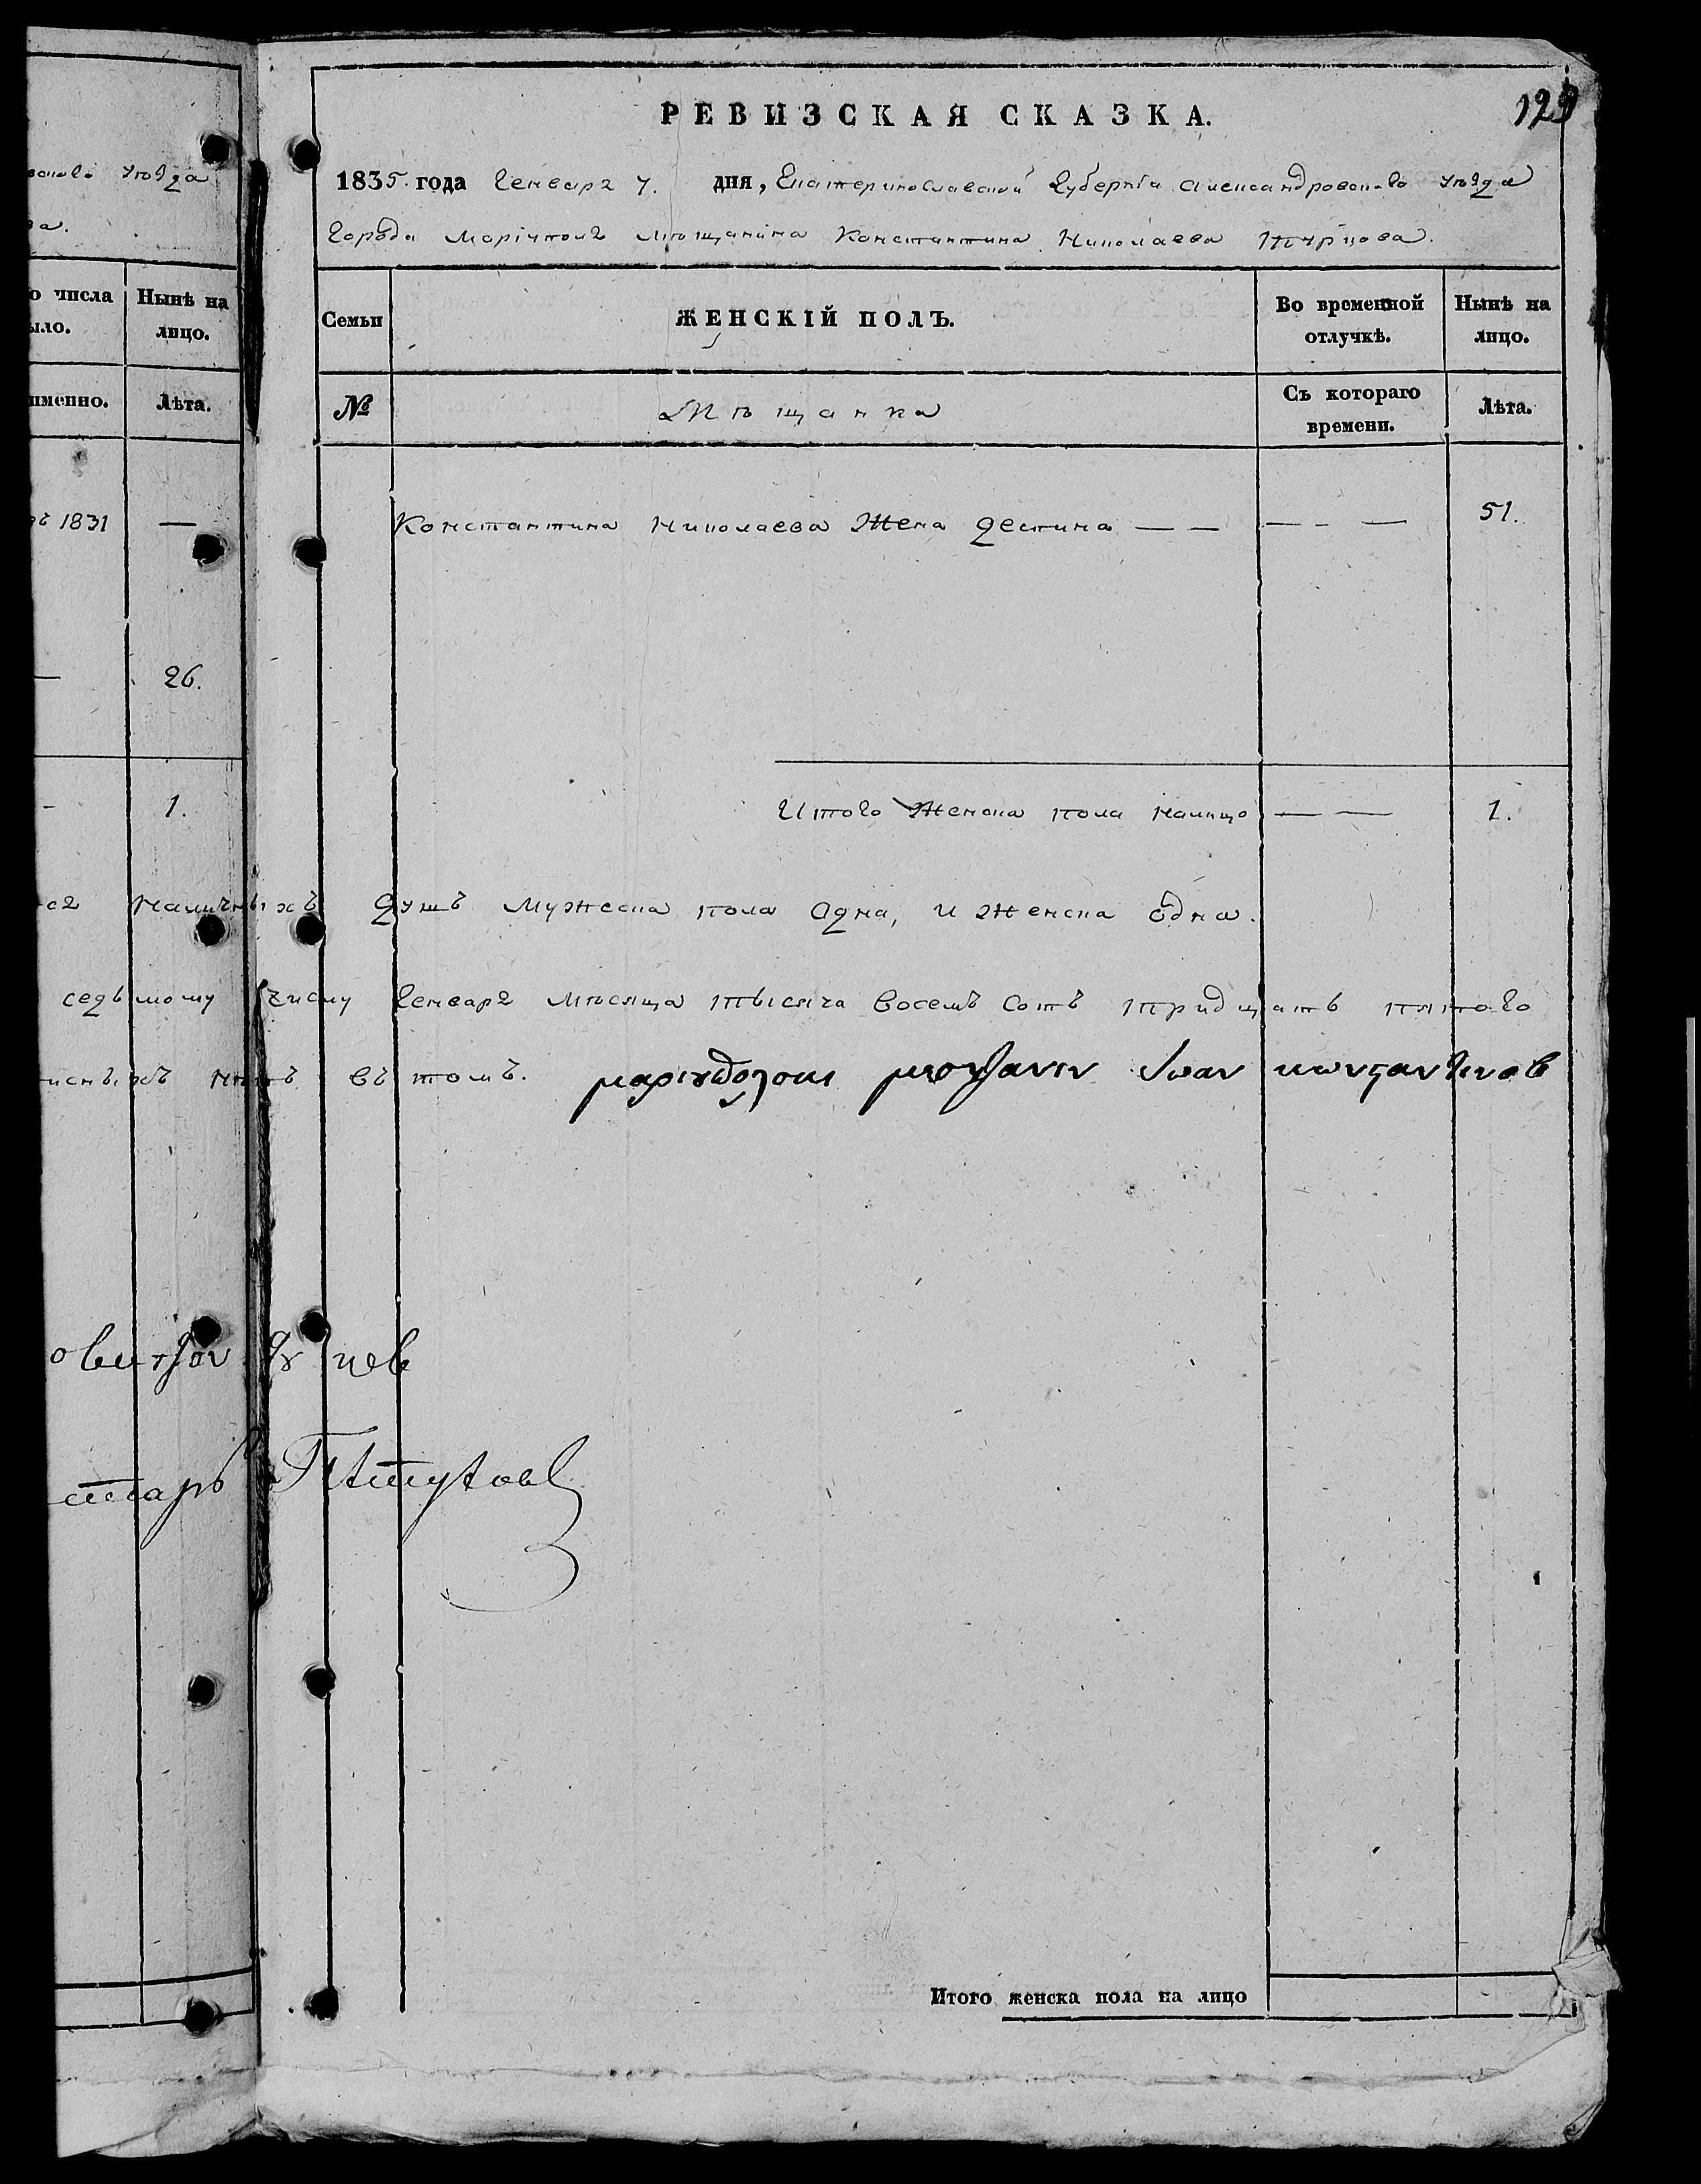 уѣзда
РЕВИЗСКАЯ СКАЗКА.
129
1835. года Генваря 7. дня, Екатеринославской Губерніи Александровскаго уѣзда
города Маріуполя мѣщанина Константина Николаева Турцова.
числа
Нынѣ на лицо.
Лѣта.
Семьи
ЖЕНСКІЙ ПОЛЪ.
Во временной отлучкѣ.
Нынѣ на лицо.
№
Мѣщанка
Съ котораго времени.
Лѣта.
1831 —
Константина Николаева Жена Деспина — — — - — 51.
— 26.
- 1.
Итого Женска пола налицо — — 1.
наличныхъ душъ мужеска пола одна, и Женска одна.
седьмому числу Генваря мѣсяца тысяча восемь сотъ тридцать пятого
нѣтъ въ томъ. μαριυπολσκι μεσζανιν Ιωαν κωνσταντινοβ
Итого женска пола на лицо